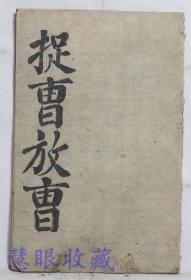 捉曹放曹
慧眼收藏